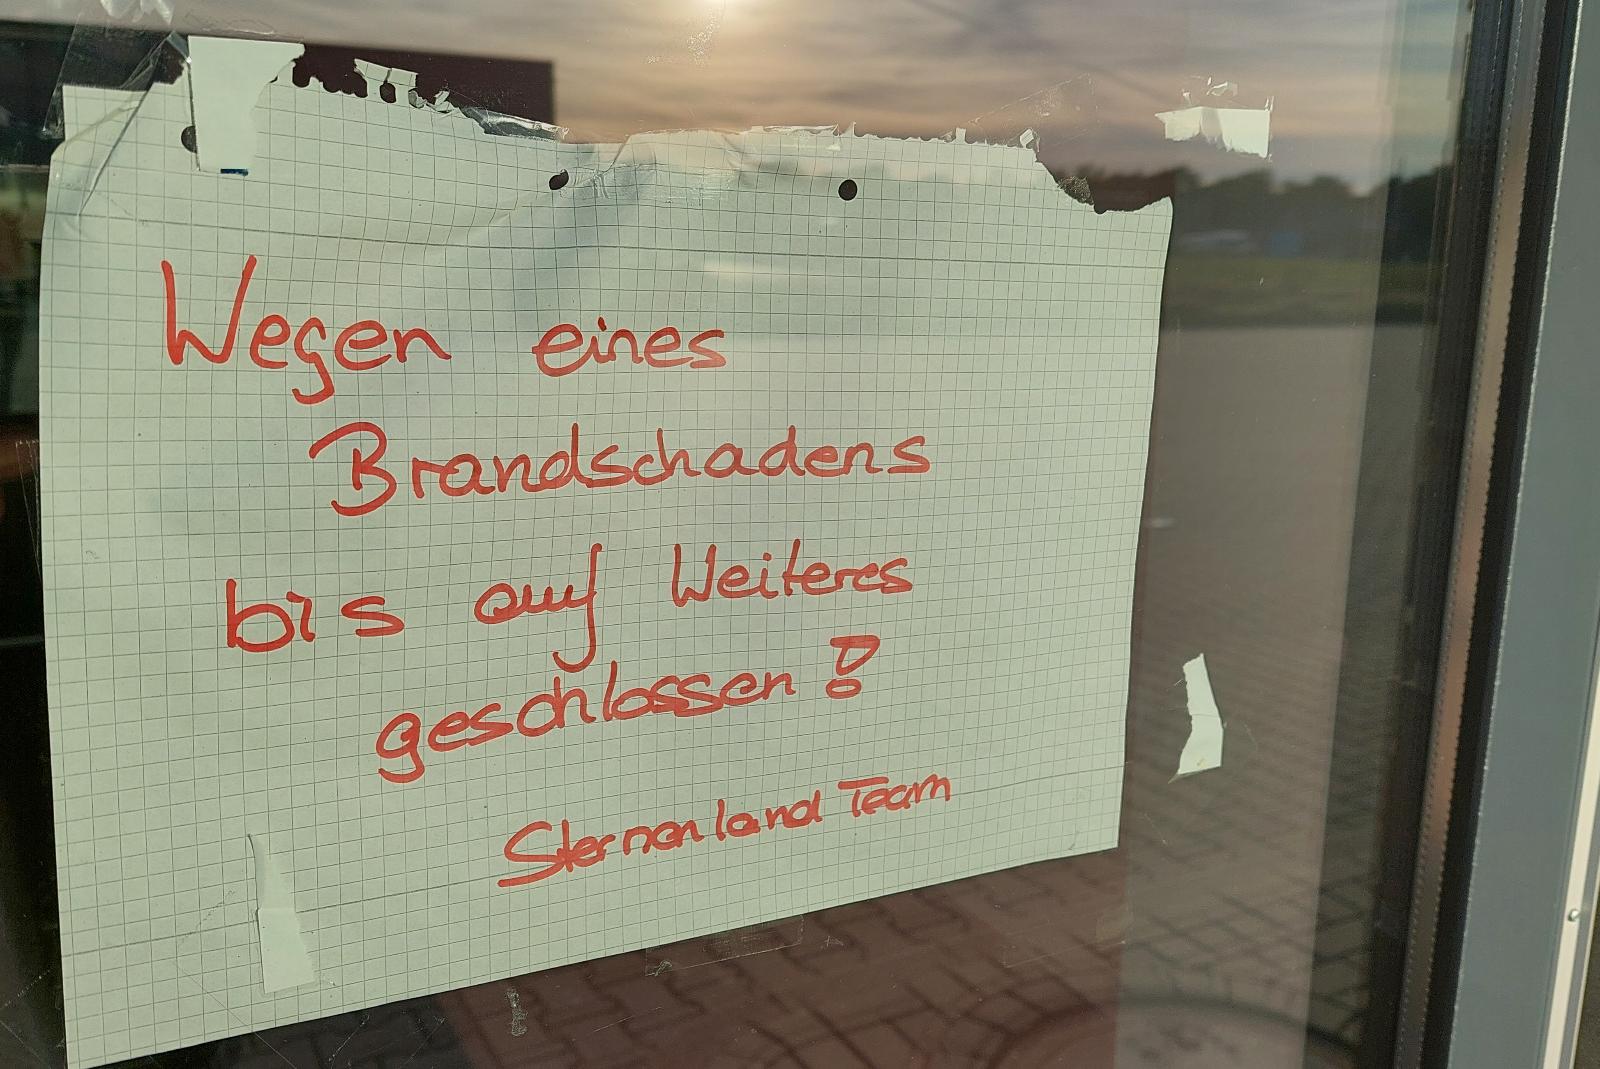 Wegen eines
Brandschadens
bis auf Weiteres
geschlossen!
Sternenland Team